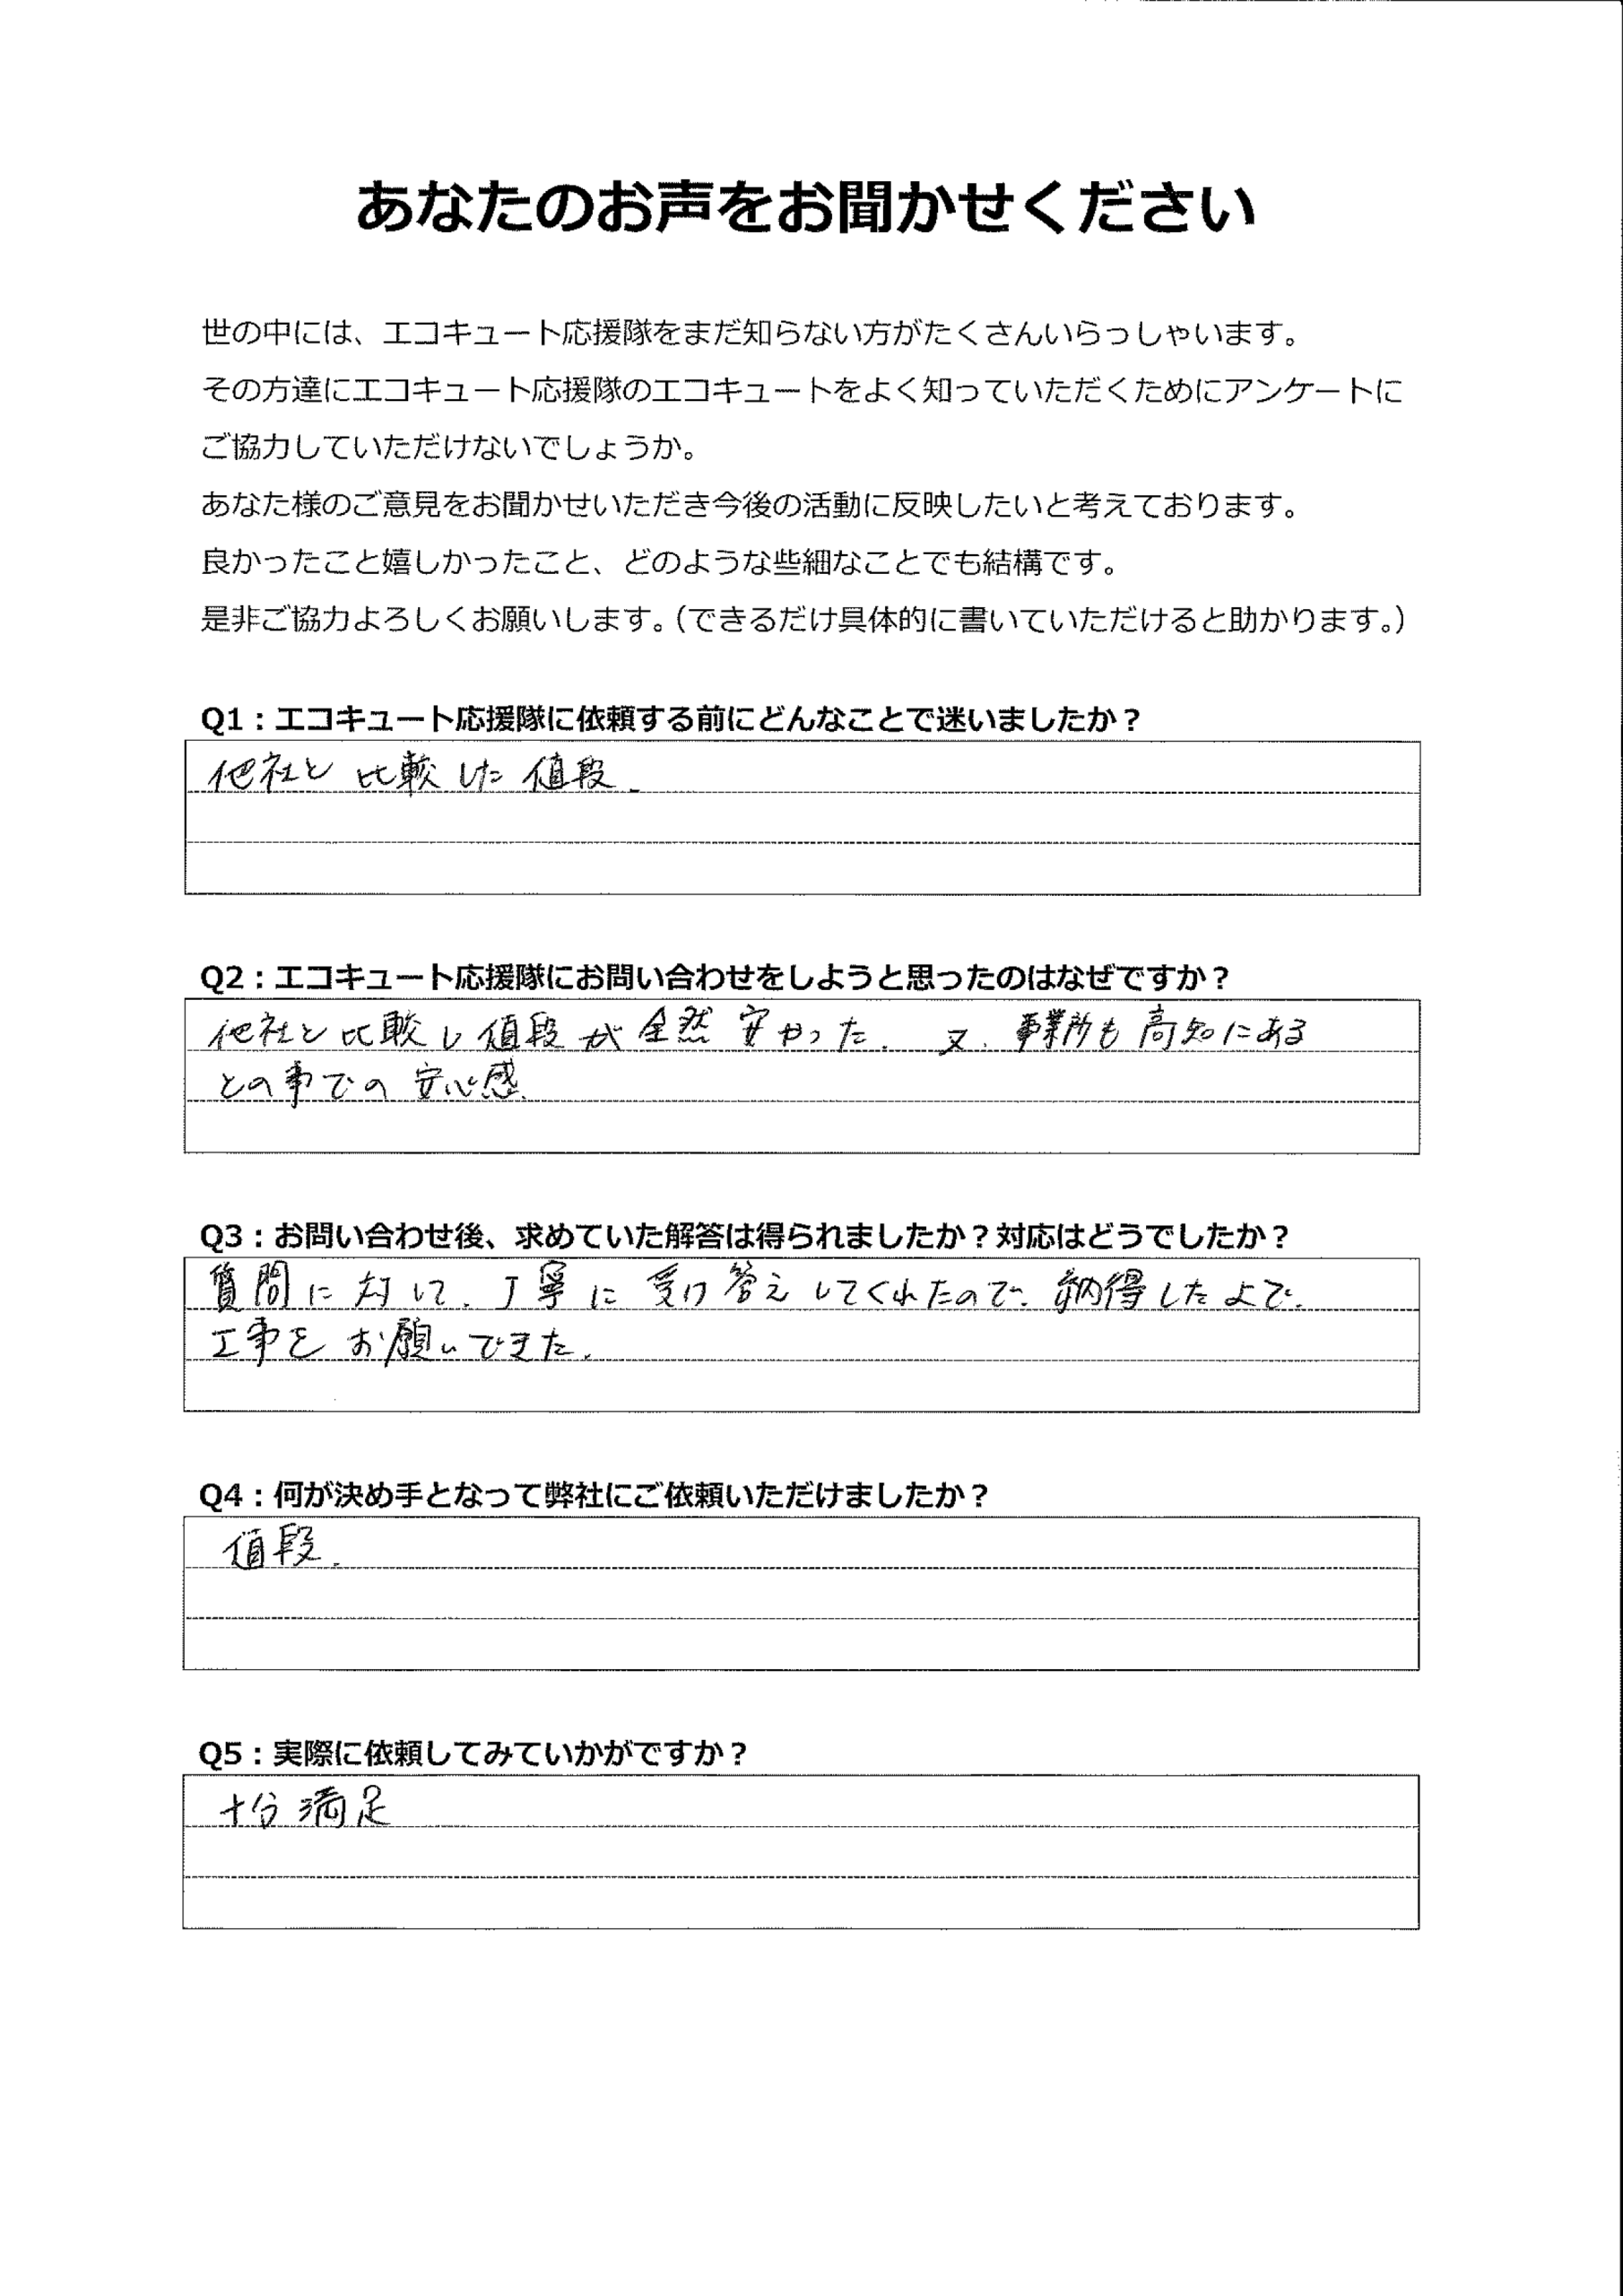 あなたのお声をお聞かせください
世の中には、エコキュート応援隊をまだ知らない方がたくさんいらっしゃいます。
その方達にエコキュート応援隊のエコキュートをよく知っていただくためにアンケートに
ご協力していただけないでしょうか。
あなた様のご意見をお聞かせいただき今後の活動に反映したいと考えております。
良かったこと嬉しかったこと、どのような些細なことでも結構です。
是非ご協力よろしくお願いします。（できるだけ具体的に書いていただけると助かります。）
Q1：エコキュート応援隊に依頼する前にどんなことで迷いましたか？
他社と比較した値段.
Q2：エコキュート応援隊にお問い合わせをしようと思ったのはなぜですか？
他社と比較し値段が全然安かった. 又、事業所も高知にある
との事での安心感.
Q3：お問い合わせ後、求めていた解答は得られましたか？対応はどうでしたか？
質問に対して、丁寧に受け答えしてくれたので、納得した上で、
工事をお願いできた.
Q4：何が決め手となって弊社にご依頼いただけましたか？
値段.
Q5：実際に依頼してみていかがですか？
十分満足